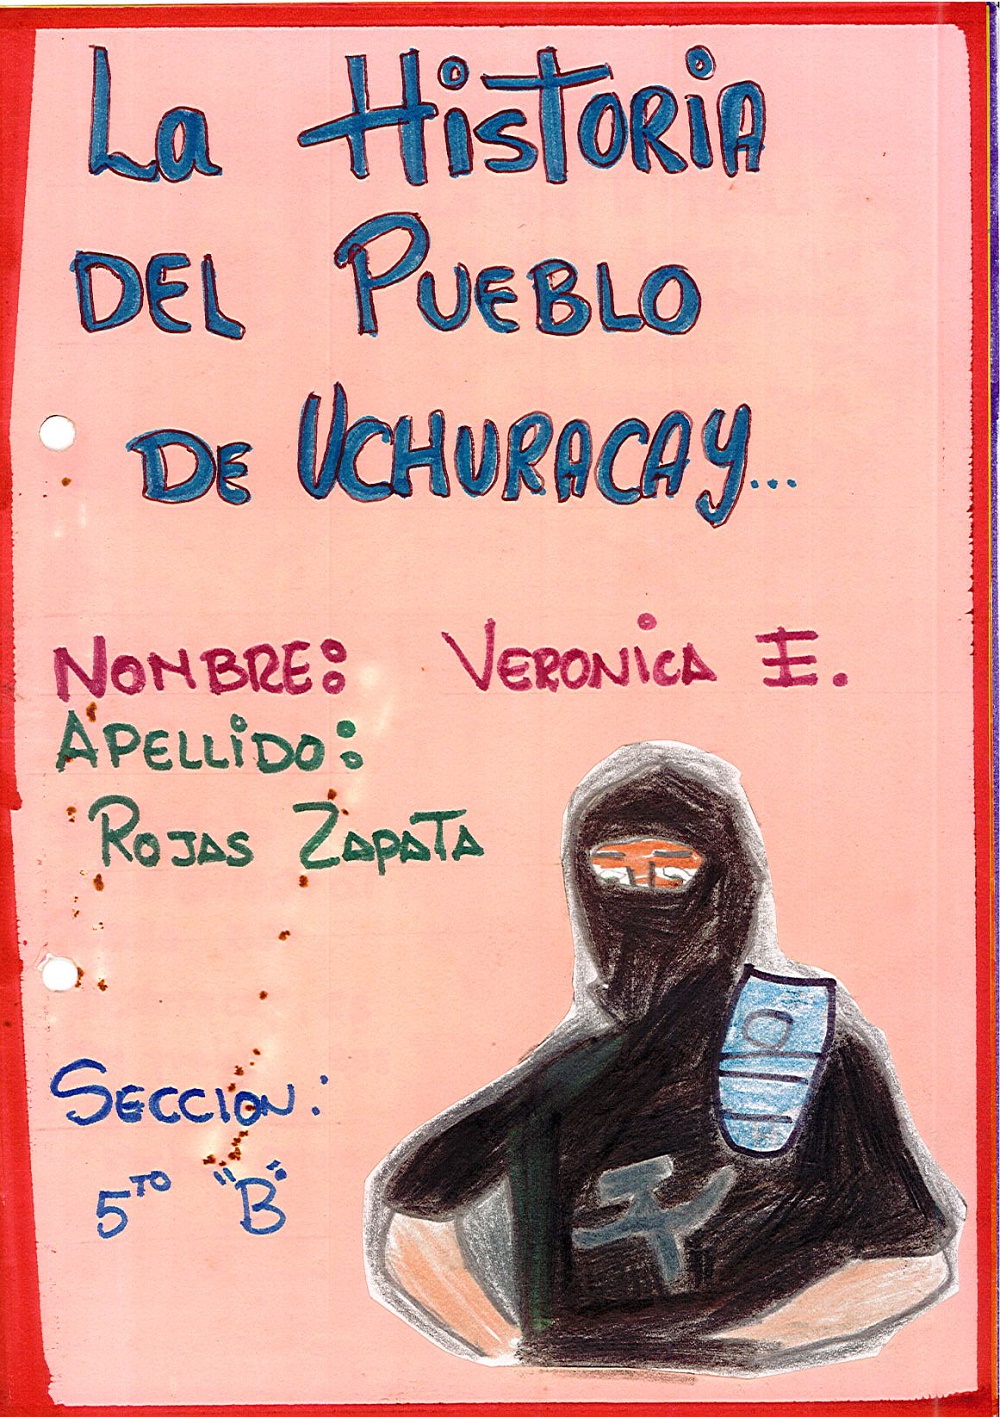 La HiSTORiA
DEL PUEBLO
DE UCHURACAY...
NOMBRE: VERONiCA E.
APELLiDO:
ROJAS ZAPATA
SECCION:
5TO "B"